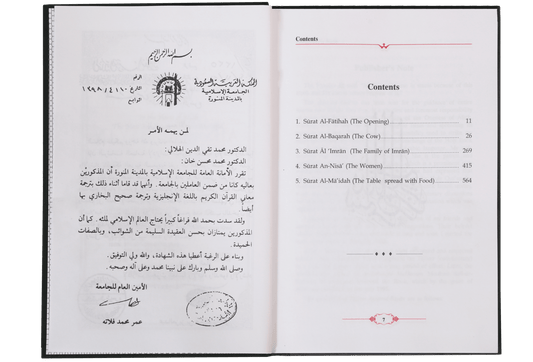 بسم الله الرحمن الرحيم
المملكة العربية السعودية
الجامعة الاسلامية
بالمدينة المنورة
الرقم
التاريخ
لمن يهمه الأمر
الدكتور محمد تقي الدين الهلالي:
الدكتور محمد محسن خان:
تقرر الأمانة العامة للجامعة الإسلامية بالمدينة المنورة أن المذكورين
بعاليه كانا من ضمن العاملين بالجامعة. وأنهما قد قاما أثناء ذلك بترجمة
معاني القرآن الكريم باللغة الإنجليزية وترجمة صحيح البخاري بها
أيضاً.
ولقد سدت بحمد الله فراغاً كبيراً يحتاج العالم الإسلامي لمله. كما أن
المذكورين يمتازان بحسن العقيدة السليمة من الشوائب، وبالصفات
الحميدة.
وبناء على الرغبة أعطيا هذه الشهادة، والله ولي التوفيق.
وصلى الله وسلم وبارك على نبينا محمد وعلى آله وصحبه.
الأمين العام للجامعة
عمر محمد فلاته
Contents
Contents
1. Sûrat Al-Fâtihah (The Opening) 11
2. Sûrat Al-Baqarah (The Cow) 26
3. Sûrat Âl 'Imrân (The Family of Imrân) 269
4. Sûrat An-Nisâ' (The Women) 415
5. Sûrat Al-Mâ'idah (The Table spread with Food) 564
7